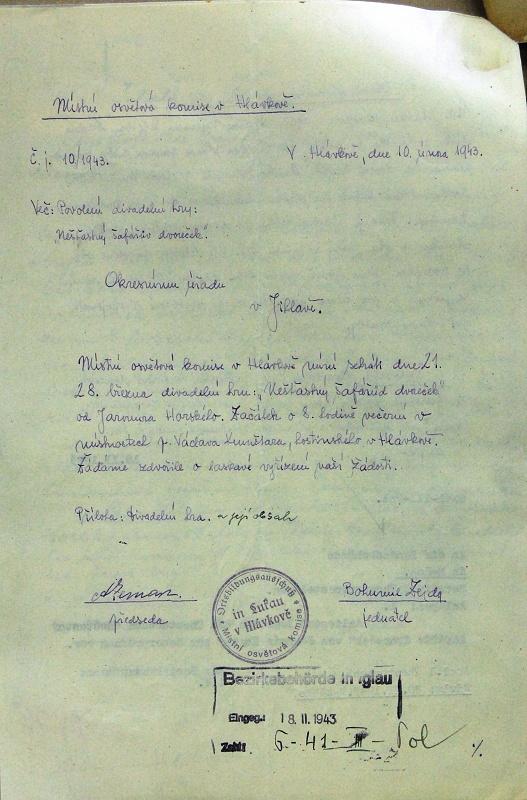 Místní osvětová komise v Hlávkově.
Č. j. 10/1943.
V Hlávkově, dne 10. února 1943.
Věc: Povolení divadelní hry:
„Nešťastný šafářův dvoreček“.
Okresnímu úřadu
v Jihlavě.
Místní osvětová komise v Hlávkově míní sehráti dne 21.
28. března divadelní hru: „Nešťastný šafářův dvoreček“
od Jaromíra Horského. Začátek o 8. hodině večerní v
místnostech p. Václava hostinského v Hlávkově.
Žádáme zdvořile o laskavé vyřízení naší žádosti.
Příloha: Divadelní hra. a její obsah
předseda
Bohumil Zejda
jednatel
Ortsbildungsausschuß
in Lukau
v Hlávkově
Místní osvětová komise
Bezirksbehörde in Iglau
Eingeg.: 18. II. 1943
Zahl: 6-41-III-Sol
%